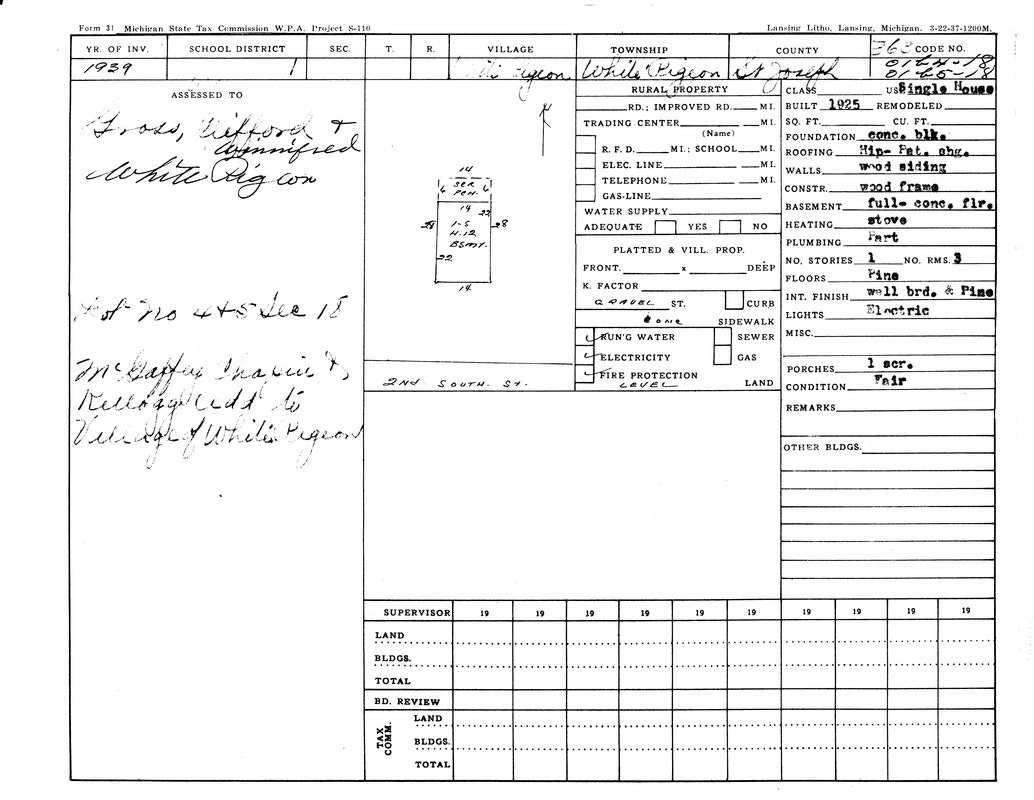 Form 31 Michigan State Tax Commission W.P.A. Project S-110
Lansing Litho, Lansing, Michigan. 3-22-37-1200M.
YR. OF INV. SCHOOL DISTRICT SEC. T. R. VILLAGE TOWNSHIP COUNTY 363 CODE NO.
1939 1 Pigeon White Pigeon St Joseph 0164-18
0165-18
ASSESSED TO
Gross, &
Winnifred
White Pigeon
Lot No 4+5 Sec 18
McGaffey &
Kellogg Add to
Village of White Pigeon
14
6 SCR. PCH. 6
14
22
28 1-S 28
H.12
BSMT.
22
14
2ND. SOUTH. ST.
RURAL PROPERTY
RD.; IMPROVED RD. MI.
TRADING CENTER MI.
(Name)
R. F. D. MI.; SCHOOL MI.
ELEC. LINE MI.
TELEPHONE MI.
GAS-LINE
WATER SUPPLY
ADEQUATE YES NO
PLATTED & VILL. PROP.
FRONT. x DEEP
K. FACTOR
GRAVEL ST. CURB
SIDEWALK
RUN'G WATER SEWER
ELECTRICITY GAS
FIRE PROTECTION
LEVEL LAND
CLASS USE Single House
BUILT 1925 REMODELED
SQ. FT. CU. FT.
FOUNDATION conc. blk.
ROOFING Hip- Pat. shg.
WALLS wood siding
CONSTR. wood frame
BASEMENT full- conc. flr.
HEATING stove
PLUMBING Part
NO. STORIES 1 NO. RMS. 3
FLOORS Pine
INT. FINISH wall brd. & Pine
LIGHTS Electric
MISC.
PORCHES 1 scr.
CONDITION Fair
REMARKS
OTHER BLDGS.
SUPERVISOR 19 19 19 19 19 19 19 19 19 19
LAND
BLDGS.
TOTAL
BD. REVIEW
TAX COMM.
LAND
BLDGS.
TOTAL